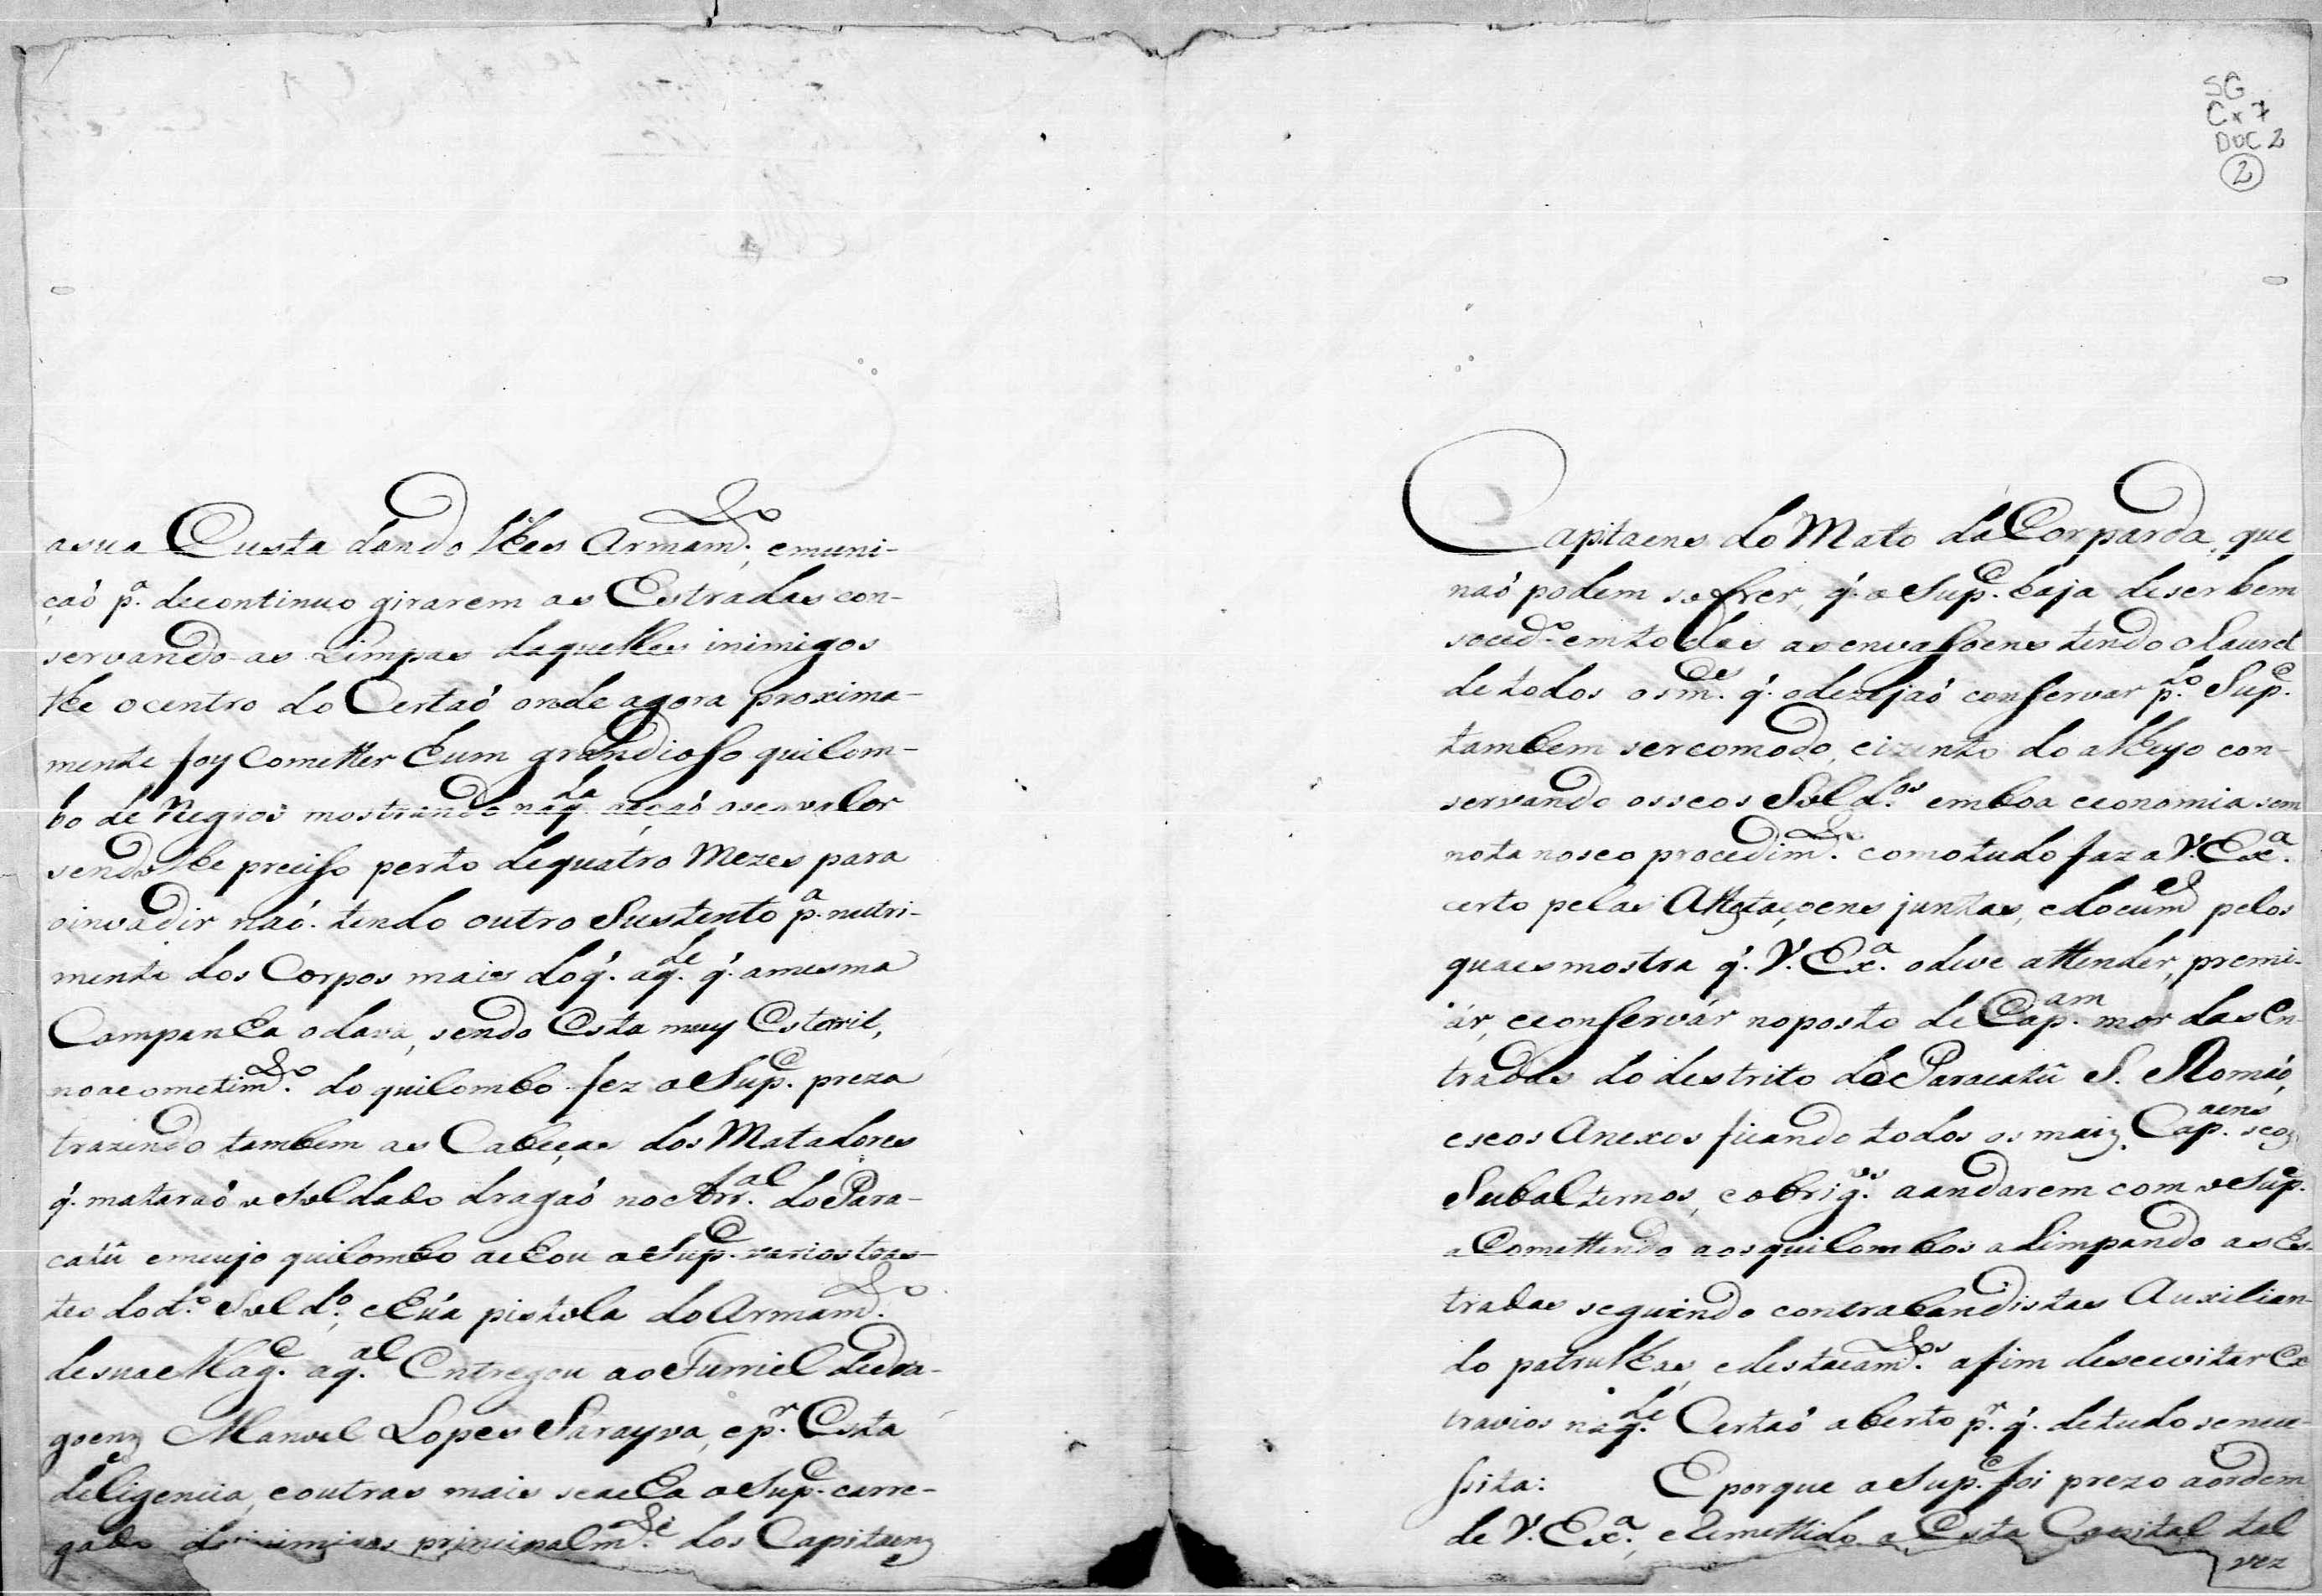 asua Custa dando lhes Armam.to, emuni-
çaó p.a decontinuo girarem as Estradas con-
servando-as Limpas daquelles inimigos
the ocentro do Certaó onde agora proxima-
mente foy Cometter hum grandiosso quilom-
bo de Negros mostrando naq.la acçaó oseo valor
sendo lhe precisso perto dequatro Mezes para
oinvadir naó. tendo outro Sustento p.a nutri-
mento dos Corpos mais doq.' aq.le q.' amesma
Campanha odava, sendo Esta muy Esteril,
noacometim.to do quilombo fez oSup.e preza
trazendo tambem as Cabeças dos Matadores
q.' mataraó oSoldado dragaó noArr.al doPara-
catû emcujo quilombo achou oSup.e varios tras-
tes dod.o Sold.o, ehúa pistola doArmam.to
desuaMag.e aq.al Entregou aoFurriel dedra-
goenz Manoel Lopes Sarayva, ep.r Esta
deligencia, eoutras mais seacha oSup.e carre-
gado de inimigos principalm.te dos Capitaenz
SG
Cx 7
DOC 2
2
Capitaens do Mato daCorparda, que
naó podem sofrer, q.' oSup.e haja deserbem
soced.o emtodas asenvassoens tendo oLaurel
detodos osm.es q.' odezejaó conservar p.lo Sup.e
tambem sercomodo, eizento do alheyo con-
servando osseos Sold.os emboa economia sem
nota noseo procedim.to comotudo faz a V. Ex.a
certo pelas Attestaçoens juntas, edocum.es pelos
quaesmostra q.' V. Ex.a odeve attender, premi-
ár, econservár noposto de Cap.am mor das En-
tradas do destrito doParacatû S. Romaó,
eseos Anexos ficando todos os maiz Cap.aens seoz
Subalternos, eobrig.os aandarem com oSup.e
aComettendo aosquilombos alimpando as Es-
tradas seguindo contrabandistas Auxilian-
do patrulhas, edestacam.tos afim deseevitar Ex-
travios naq.le Certaó aberto p.r q.' detudo senece-
ssita: Eporque oSup.e foi prezo aordem
de V. Ex.a, eRemettido a Esta Capital tal
vez